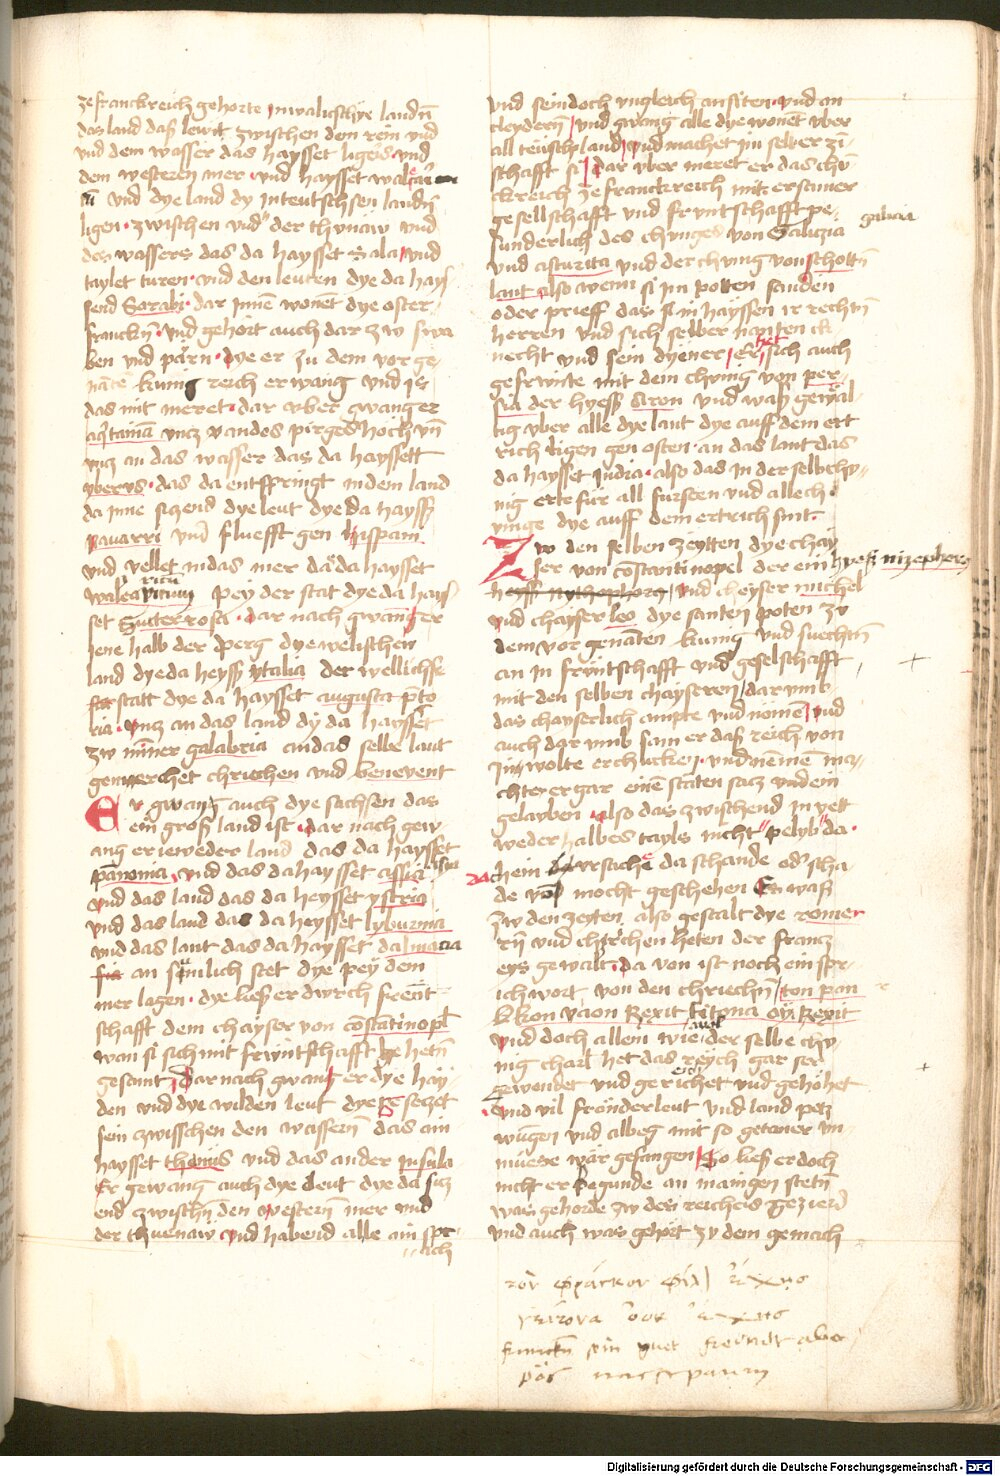 ze franckreich gehorte in walischye landn̄
das land daß lewit zwischen dem rein vnd
vnd dem wasser das haysset ligeris vnd
dem westeren mer vnd haysset
vnd dye land dy in teutschsen landn̄
ligen zwischen vnd der thunaw vnd
des wassers das da haysset Sala vnd
taylet turen vnd den leuten dye da hays
send Sorabi dar inne wonet dye oster
franckn̄ vnd gehort auch dar zw swa
ben vnd pärn dye er zu dem vor ge
nāte kunig reich er wang vnd is
das mit meret dar vber gwang er
aq̄taniā vncz vandes pirges hoch vn̄
vncz an das wasser das da hayssett
yberus das da entspringt in dem land
da inne siczend dye leut dye da hayss
nauarri vnd fluesst gen hispam
vnd vellet in das mer da da haysset
pey der stat dye da hays
set Dar nach gwang er
iene halb der perg dye welischen
land dye da heyss ytalia der wellichse
statt dye da haysset augusta p̄to
ria vncz an das land dy da haysset
zw inner galabria an das selbe lant
gemerchet chriechen vnd benevent
Er gwang auch dye sachsen das
ein groß land ist dar nach gew
ang er ieweder land das da haysset
panonia vnd das da haysset
vnd das land das da heysset ystria
vnd das land das da heysset lyburnia
vnd das lant das da haysset dalmacia
an sämlich stet dye pey dem
mer lagen dye ließ er dwrch freünt
schafft dem chayser von cōstātinopl
wan si sich mit frewntschafft hetn̄
gesamt dar nach gwang er dye hay
den vnd dye wilden leut dye seczet
sein zwisschen den wassern das ain
haysset thonis vnd das ander insula
Er gewang auch dye leut dye da sicz
end zwischn̄ den western mer vnd
der thuenaw vnd habend alle ain spr
ach
vnd sein doch vngleich an siten vnd an
cleydern vnd gwang alle dye wonet vber
all teüschland vnd machet im selber zi
schafft si dar vber meret er das chü
ckreich ze franckreich mit ersamer
gesellschafft vnd fryntschafft pe
sunderlich des chunges von Galizia
galicia
vnd asturica vnd der chvng von schottn̄
lant also wenn si im poten sanden
oder prieff das si in hayssen ir rechtn̄
herren vnd sich selber nanten ir
necht vnd sein dyener Er het sich auch
gefrwnte mit dem chvnig von per
sia der hyess Aron vnd was gewal
tig vber alle dye lant dye auff dem ert
rich ligen gen osten an das lant das
da haysset India also das in der selb chy
nig erte fur all fursten vnd all ch
unge dye auff dem ertrich sint
Zw den selben zeytten dye chay
ser von cōstantinopel der ein hyeß nizephorus
heyss nythophora vnd cheyser michel
vnd chayser leo dye santen poten zv
dem vor genāten kunig vnd suechtn̄
an in fryntschafft vnd geselschafft
mit den selben chayseren dar vmb
das chayserlich ampte vnd nomen vnd
auch dar vmb sam er daß reich von
In wolte erchucken vnd nēmen ma
chter er gar einē stäten facz vnd ein
gelauben also das zwischend in yett
weder halbes tayls nicht pelyb da
chein vrsache da schande od scha
de von mocht geschehen Es waß
zw den zeyten also gestalt dye romer
ey vnd chirchen heten der francz
eys gewalt da von ist noch ein spr
ichwort von den chriechn̄ ton pan
kkon vaon Rexit kitona oyx Rexit
vnd doch allein wie der selbe chv
nig charl het das reych gar ser
gewendet vnd gerichet vnd gehohet
vnd vil fronder leut vnd land petz
wungen vnd albeg mit so getaner vn
muesse wär gefangen So ließ er doch
nicht er begunde an maingen stetn̄
was gehorde zw des reiches gezierd
vnd auch was gehort zv dem gemach
franckn̄ ein guet freundt aber
pös nachtpaurn